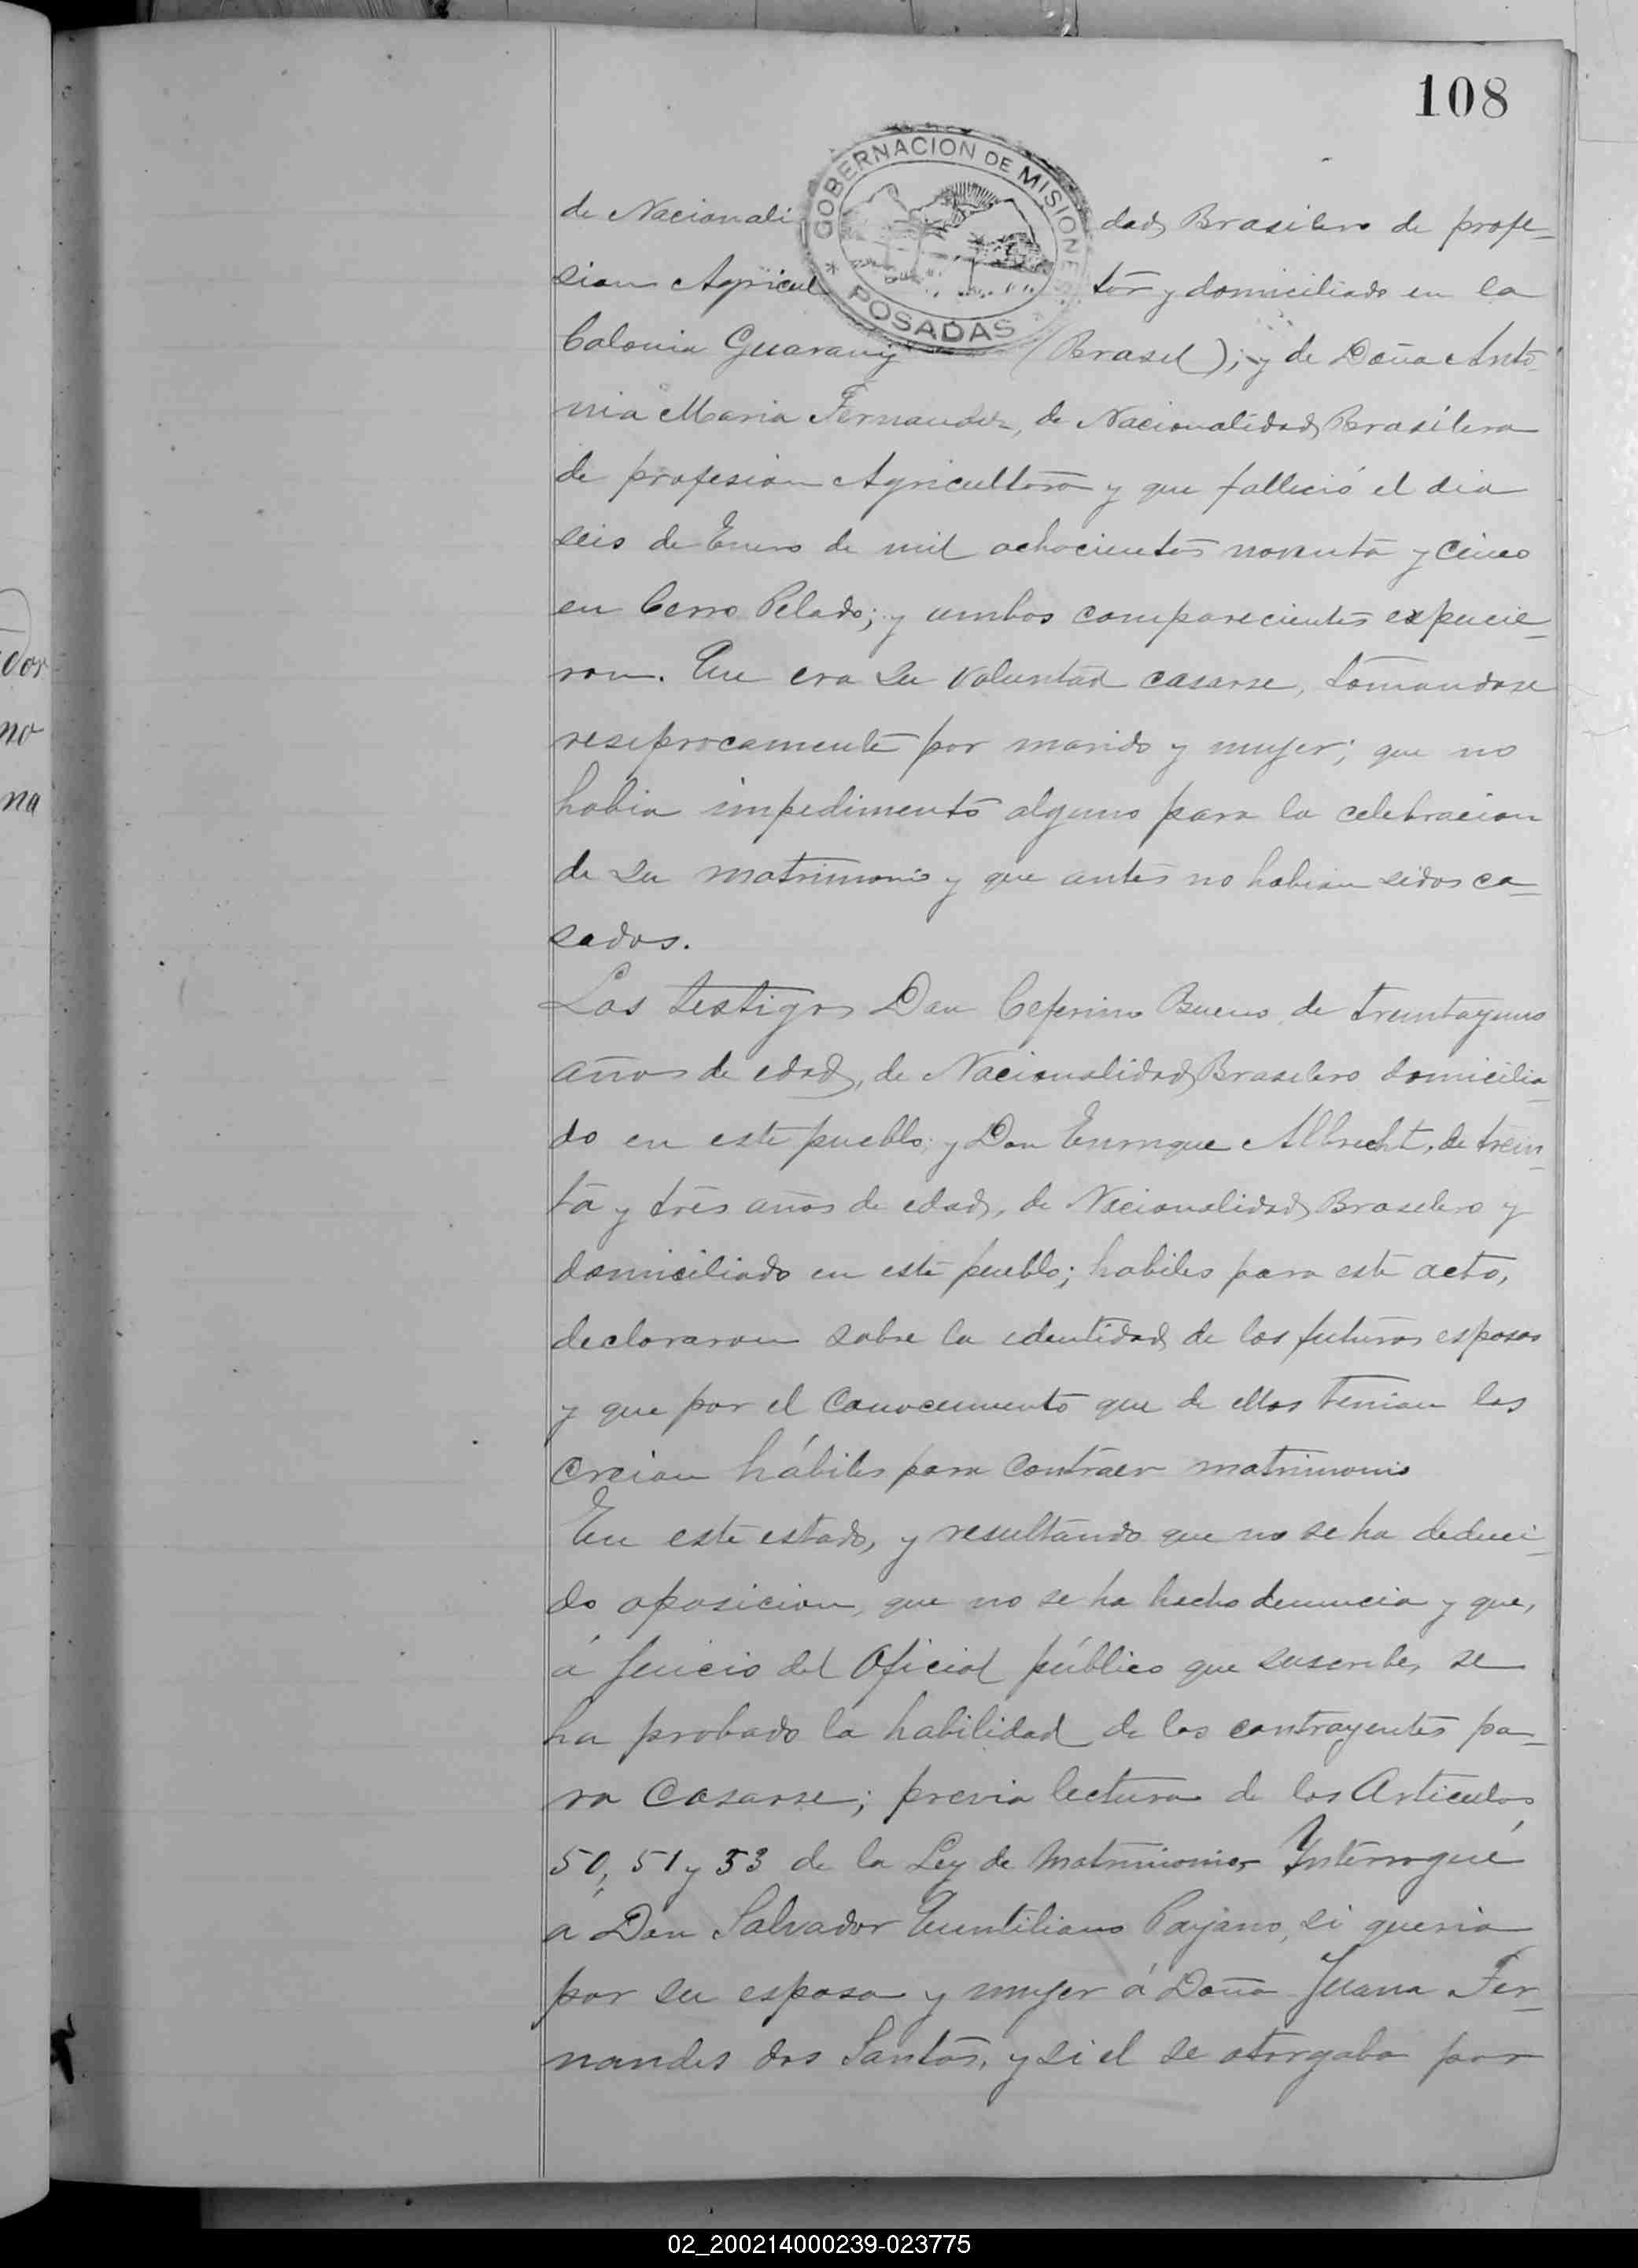 108
GOBERNACION DE MISIONES
* POSADAS *
de Nacionali dad Brasilero de profe-
sion Agricul tor y domiciliado en la
Colonia Guarany (Brasil); y de Doña Anto-
nia Maria Fernandez, de Nacionalidad Brasilera
de profesion Agricultora y que falleció el dia
seis de Enero de mil ochocientos noventa y cinco
en Cerro Pelado; y ambos comparecientes expucie-
ron. Que era su voluntad casarse, tomandose
resiprocamente por marido y mujer; que no
habia impedimento alguno para la celebracion
de su matrimonio y que antes no habian sidos ca-
sados.
Los testigos Don Ceferino Bueno, de treintayuno
años de edad, de Nacionalidad Brasilero domicilia-
do en este pueblo; y Don Enrrique Albrecht, de trein-
ta y tres años de edad, de Nacionalidad Brasilero y
domiciliado en este pueblo; habiles para este acto,
declararon sobre la identidad de los futuros esposos
y que por el conocimiento que de ellos tenian los
creian hábiles para contraer matrimonio
En este estado, y resultando que no se ha deduci-
do oposicion, que no se ha hecho denuncia y que,
á juicio del Oficial público que suscribe, se
ha probado la habilidad de los contrayentes pa-
ra casarse; previa lectura de los Articulos
50, 51 y 53 de la Ley de Matrimonio, Ynterrogué
á Don Salvador Quintiliano Payano, si queria
por su esposa y mujer á Doña Juana Fer-
nandes dos Santos, y si el se otorgaba por
dor
no
na
02_200214000239-023775